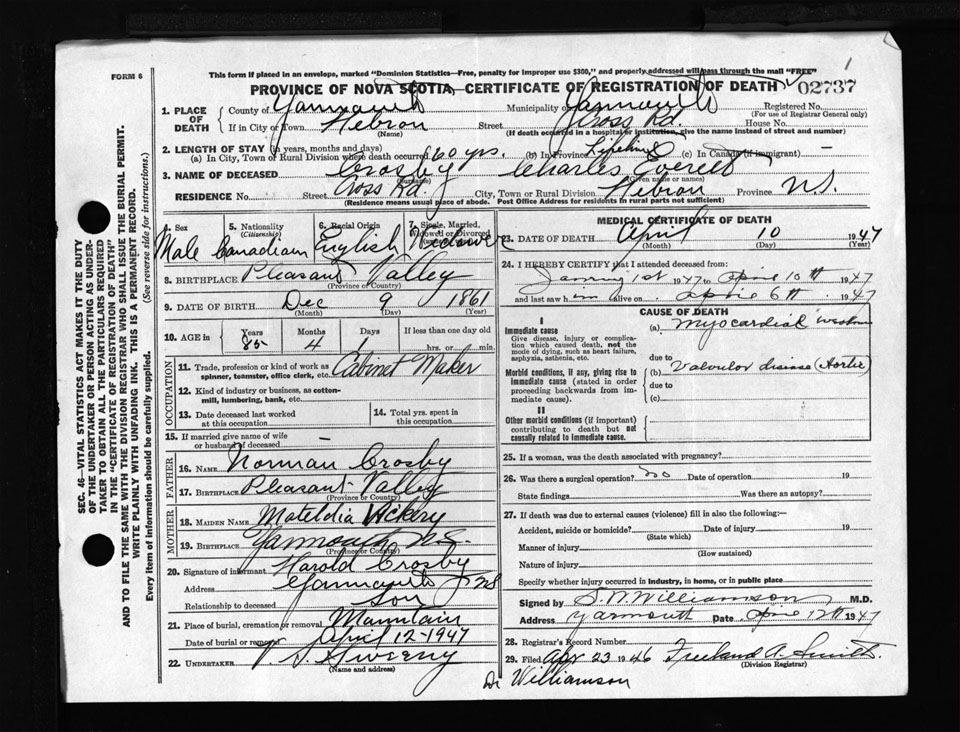 FORM 6
This form if placed in an envelope, marked "Dominion Statistics—Free, penalty for improper use $300," and properly addressed will pass through the mail "FREE"
1
PROVINCE OF NOVA SCOTIA—CERTIFICATE OF REGISTRATION OF DEATH
02737
1. PLACE OF DEATH
County of Yarmouth
Municipality of Yarmouth
Registered No.
(For use of Registrar General only)
If in City or Town Hebron Street Cross Rd. House No.
(Name)
(If death occurred in a hospital or institution, give the name instead of street and number)
2. LENGTH OF STAY (in years, months and days)
(a) In City, Town or Rural Division where death occurred 60 yrs. (b) In Province Lifetime (c) In Canada (if immigrant) —
3. NAME OF DECEASED Crosby Charles Everett
(Surname) (Given name or names)
RESIDENCE No. Street Cross Rd. City, Town or Rural Division Hebron Province N.S.
(Residence means usual place of abode. Post Office Address for residents in rural parts not sufficient)
4. Sex 5. Nationality (Citizenship) 6. Racial Origin 7. Single, Married, Widowed or Divorced
Male Canadian English Widower
8. BIRTHPLACE Pleasant Valley
(Province or Country)
9. DATE OF BIRTH Dec 9 1861
(Month) (Day) (Year)
10. AGE in Years Months Days If less than one day old
85 4 1 hrs. or min.
OCCUPATION
11. Trade, profession or kind of work as spinner, teamster, office clerk, etc. Cabinet Maker
12. Kind of industry or business, as cotton-mill, lumbering, bank, etc.
13. Date deceased last worked at this occupation
14. Total yrs. spent in this occupation
15. If married give name of wife or husband of deceased —
FATHER
16. NAME Norman Crosby
17. BIRTHPLACE Pleasant Valley
(Province or Country)
MOTHER
18. MAIDEN NAME Mateldia Vickery
19. BIRTHPLACE Yarmouth N.S.
(Province or Country)
20. Signature of informant Harold Crosby
Address Yarmouth NS
Relationship to deceased Son
21. Place of burial, cremation or removal Mountain
Date of burial or removal April 12-1947
22. UNDERTAKER V. S. Sweeny
(Name and address)
MEDICAL CERTIFICATE OF DEATH
23. DATE OF DEATH April 10 1947
(Month) (Day) (Year)
24. I HEREBY CERTIFY that I attended deceased from:
1st 1947 to April 10th 1947
and last saw him alive on April 6th 1947
CAUSE OF DEATH
I
Immediate cause
Give disease, injury or complication which caused death, not the mode of dying, such as heart failure, asphyxia, asthenia, etc.
(a) Myocardial
due to
Morbid conditions, if any, giving rise to immediate cause (stated in order proceeding backwards from immediate cause).
(b) Valvular disease (Aortic)
due to
(c)
II
Other morbid conditions (if important) contributing to death but not causally related to immediate cause.
25. If a woman, was the death associated with pregnancy?
26. Was there a surgical operation? no Date of operation 19
State findings Was there an autopsy?
27. If death was due to external causes (violence) fill in also the following:—
Accident, suicide or homicide? Date of injury 19
(State which)
Manner of injury
(How sustained)
Nature of injury
Specify whether injury occurred in industry, in home, or in public place
Signed by S. W. Williamson M.D.
Address Yarmouth Date April 12th 1947
28. Registrar's Record Number
29. Filed Apr 23 1946 Freeland A. Smith.
(Division Registrar)
Dr Williamson
SEC. 46—VITAL STATISTICS ACT MAKES IT THE DUTY
OF THE UNDERTAKER OR PERSON ACTING AS UNDERTAKER TO OBTAIN ALL THE PARTICULARS REQUIRED
IN THE "CERTIFICATE OF REGISTRATION OF DEATH"
AND TO FILE THE SAME WITH THE DIVISION REGISTRAR WHO SHALL ISSUE THE BURIAL PERMIT.
WRITE PLAINLY WITH UNFADING INK. THIS IS A PERMANENT RECORD.
Every item of information should be carefully supplied. (See reverse side for instructions.)